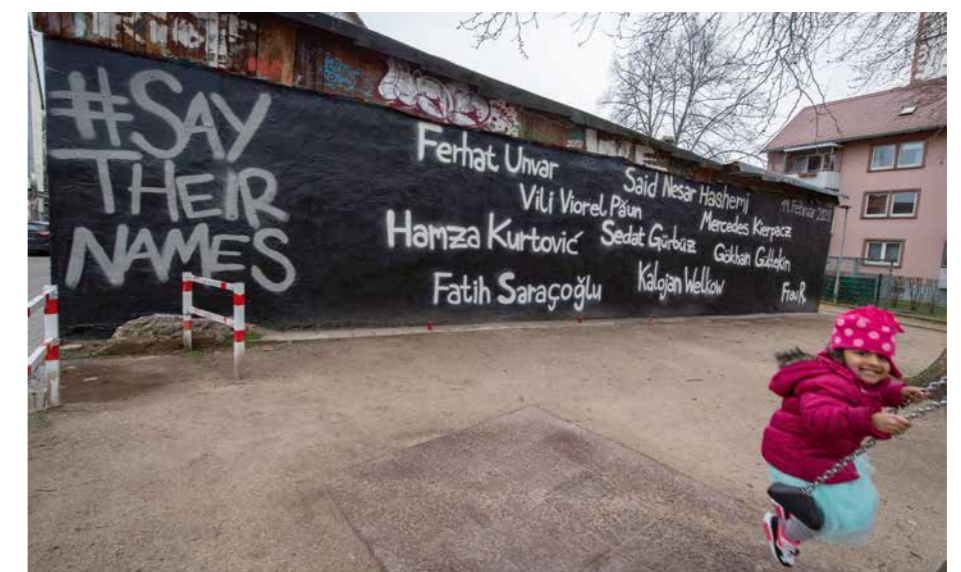 #SAY
THEIR
NAMES
Ferhat Unvar
Said Nesar Hashemi
19. Februar 2020
Vili Viorel Păun
Mercedes Kierpacz
Hamza Kurtović
Sedat Gürbüz
Gökhan Gültekin
Fatih Saraçoğlu
Kalojan Welkow
Frau R